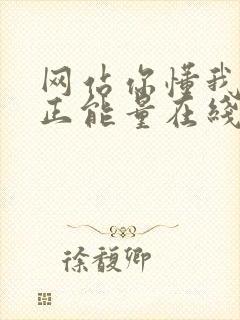 网站你懂我
正能量在线
徐馥卿